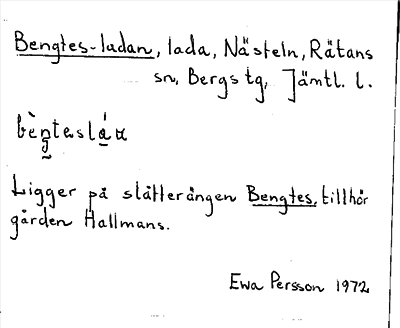 Bengtes-ladan, lada, Nästeln, Rätans
sn, Bergs tg, Jämtl. l.
bèŋtasláa
Ligger på slåtterängen Bengtes, tillhör
gården Hallmans.
Ewa Persson 1972